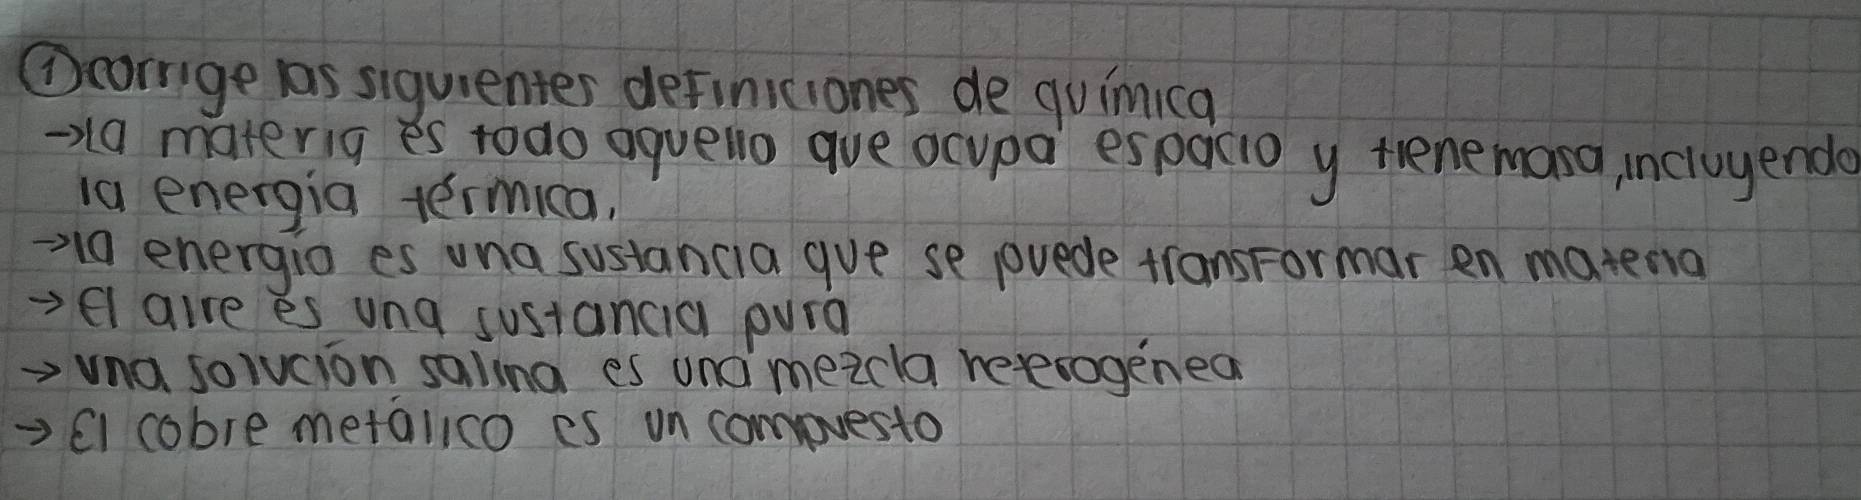 ① corrige las siguientes definiciones de química
→ la materia es todo aquello que ocupa espacio y tiene masa, incluyendo
la energía térmica.
→ la energía es una sustancia que se puede transformar en materia
→ El aire es una sustancia pura
→ una solución salina es una mezcla heterogénea
→ El cobre metálico es un compuesto